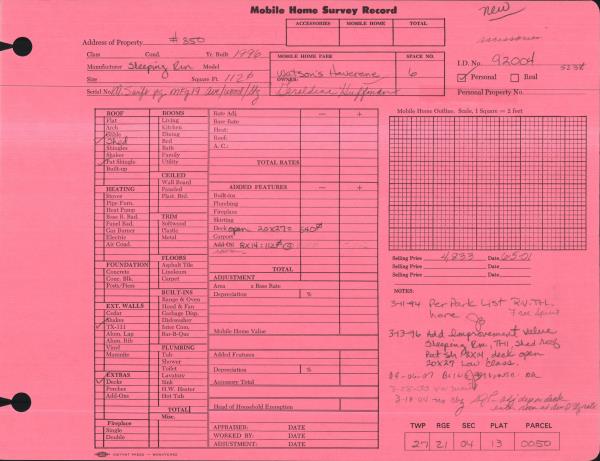 Mobile Home Survey Record
new
ACCESSORIES MOBILE HOME TOTAL
accessories
Address of Property #350
Class Cond. Yr. Built 1996
Manufacturer Sleeping Rm Model
Size Square Ft. 112⌀
Serial No.
MOBILE HOME PARK SPACE NO.
Watson's Havorene 6
OWNER:
Geraldine Huffman
I.D. No. 92004
Personal Real
Personal Property No.
ROOF
Flat
Arch
Gable
Shed
Shingles
Shakes
Pat Shingle
Built-up
HEATING
Stover
Pipe Furn.
Heat Pump
Base B. Rad.
Panel Rad.
Gas Burner
Electric
Air Cond.
FOUNDATION
Concrete
Conc. Blk.
Posts/Piers
EXT. WALLS
Cedar
Shakes
TX-111
Alum. Lap
Alum. Rib
Vinyl
Masonite
EXTRAS
Decks
Porches
Add-Ons
Fireplace
Single
Double
ROOMS
Living
Kitchen
Dining
Bed
Bath
Family
Utility
CEILED
Wall Board
Paneled
Plast. Brd.
TRIM
Softwood
Plastic
Metal
FLOORS
Asphalt Tile
Linoleum
Carpet
BUILT-INS
Range & Oven
Hood & Fan
Garbage Disp.
Dishwasher
Inter Com.
Bar-B-Que
PLUMBING
Tub
Shower
Toilet
Lavatory
Sink
H.W. Heater
Hot Tub
TOTAL
Misc.
Rate Adj. — +
Base Rate
Heat:
Roof:
A. C.:
TOTAL RATES
ADDED FEATURES — +
Built-ins
Plumbing
Fireplace
Skirting
Deck open 20x27= 540⌀
Carport
Add-On 8X14=112⌀
TOTAL
ADJUSTMENT
Area x Base Rate
Depreciation %
Mobile Home Value
Added Features
Depreciation %
Accessory Total
Head of Household Exemption
APPRAISER: DATE
WORKED BY: DATE
ADJUSTMENT: DATE
Mobile Home Outline. Scale, 1 Square = 2 feet
Selling Price 4,833 Date 6501
Selling Price Date
Selling Price Date
NOTES:
3-11-94 Per Park List R.V.T.L.
here
3-13-96 Add Improvement Value
Sleeping Rm, T111 Shed Roof
Pat Sh 8X14, deck open
20X27 Low Class.
TWP RGE SEC PLAT PARCEL
27 21 04 13 0050